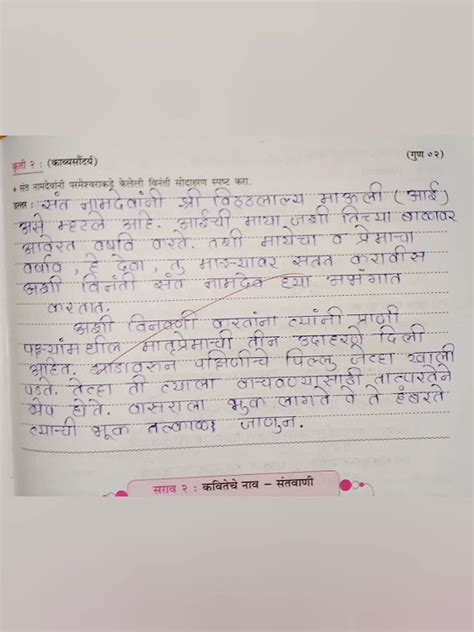 कृती २ : (काव्यसौंदर्य) (गुण ०२)
• संत नामदेवांनी परमेश्वराकडे केलेली विनंती सोदाहरण स्पष्ट करा.
उत्तर : संत नामदेवांनी श्री विठ्ठलाल्य माऊली (आई)
असे म्हरले आहे. आईची माया जशी तिच्या बाळावर
अविरत वर्षाव करते. तशी मायेचा व प्रेमाचा
वर्षाव, हे देवा, तु माझ्यावर सतत करावीस
अशी विनंती संत नामदेव ह्या अभंगात
करतात.
अशी विनवणी करतांना त्यांनी प्राणी
पक्ष्यांमधील मातृप्रेमाची तीन उदाहरणे दिली
आहेत. झाडावरुन पक्षिणीचे पिल्लु जेव्हा खाली
पडते. तेव्हा ती त्याला वाचवण्यासाठी तात्परतेने
झेप घेते. वासराला भुक लागते व ते हंबरते
त्याची भूक तत्काळ जाणुन.
सराव २ : कवितेचे नाव – संतवाणी